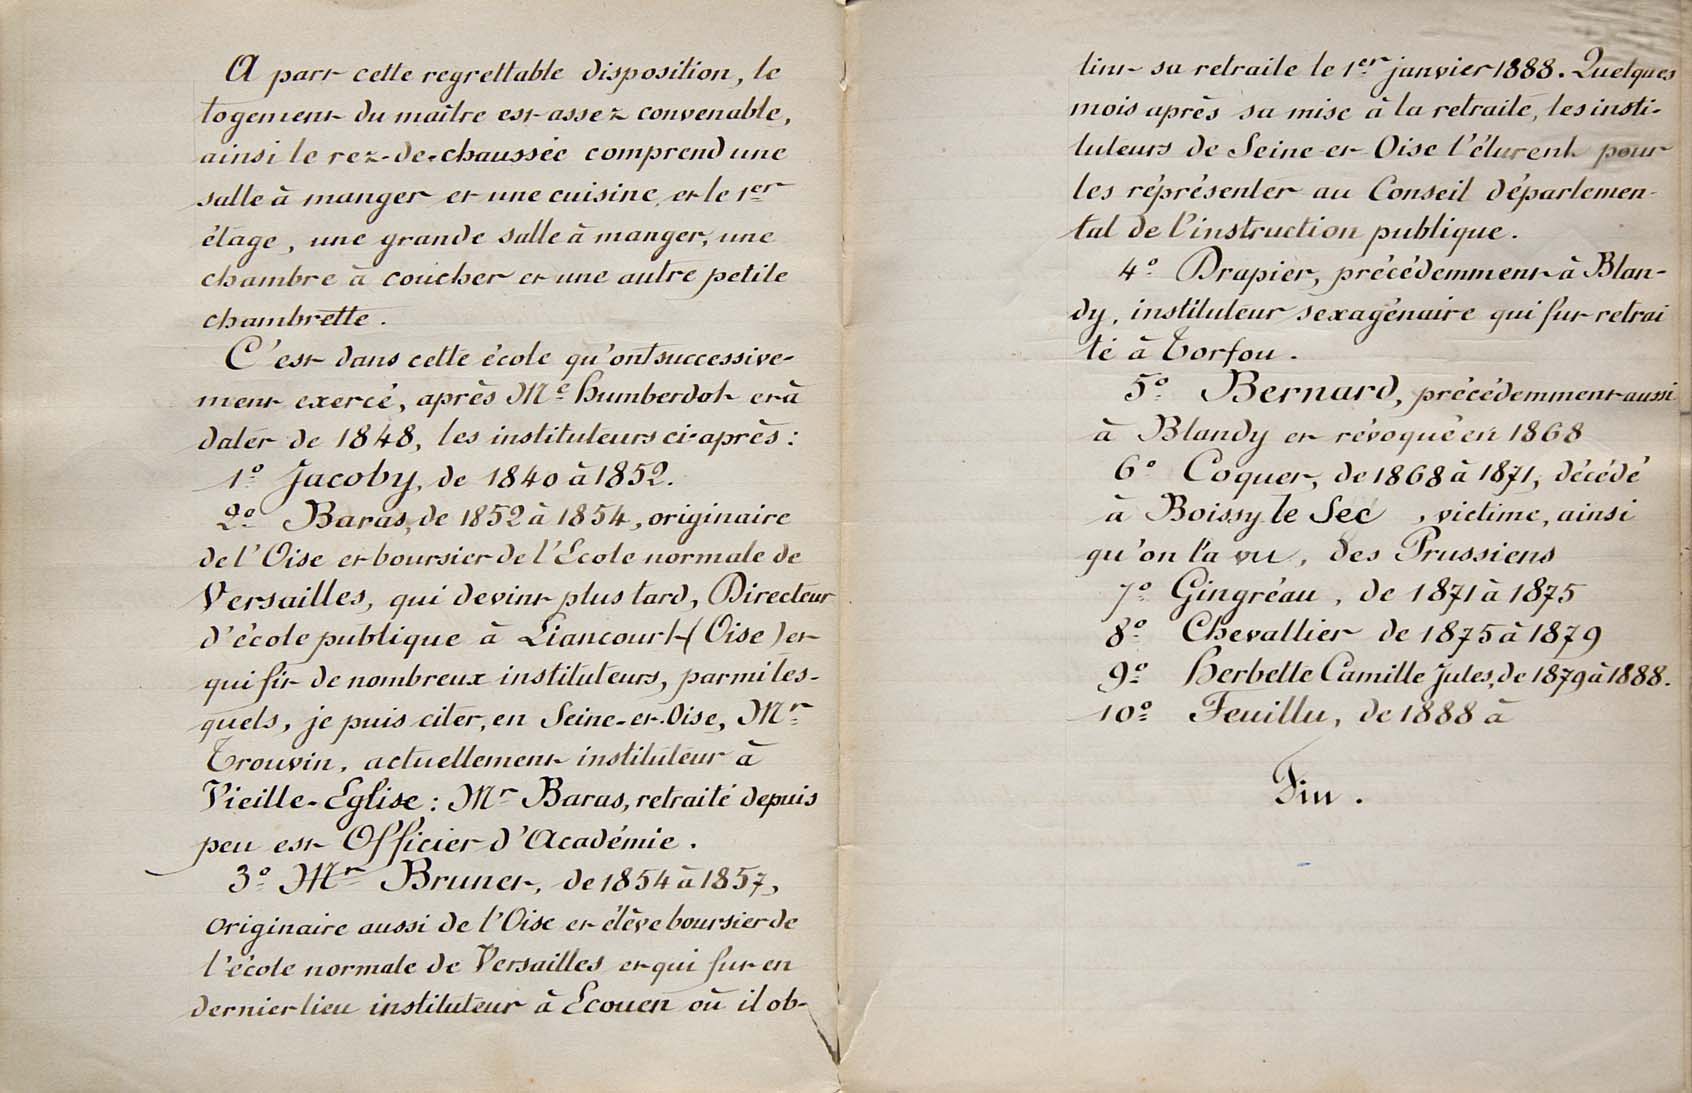 A part cette regrettable disposition, le
logement du maître est assez convenable,
ainsi le rez-de-chaussée comprend une
salle à manger et une cuisine, et le 1er
étage, une grande salle à manger, une
chambre à coucher et une autre petite
chambrette.
C'est dans cette école qu'ont successive-
ment exercé, après Me Humberdot et à
dater de 1848, les instituteurs ci-après :
1° Jacoby, de 1840 à 1852.
2° Baras, de 1852 à 1854, originaire
de l'Oise et boursier de l'Ecole normale de
Versailles, qui devint plus tard, Directeur
d'école publique à Liancourt (Oise) et
qui fit de nombreux instituteurs, parmi les-
quels, je puis citer, en Seine-et-Oise, Mr
Trouvin, actuellement instituteur à
Vieille-Eglise : Mr Baras, retraité depuis
peu est Officier d'Académie.
3° Mr Brunet, de 1854 à 1857,
originaire aussi de l'Oise et élève boursier de
l'école normale de Versailles et qui fut en
dernier lieu instituteur à Ecouen où il ob-
tint sa retraite le 1er janvier 1888. Quelques
mois après sa mise à la retraite, les insti-
tuteurs de Seine et Oise l'élurent pour
les réprésenter au Conseil départemen-
tal de l'instruction publique.
4° Drapier, précédemment à Blan-
dy, instituteur sexagénaire qui fut retrai
té à Torfou.
5° Bernard, précédemment aussi
à Blandy et révoqué en 1868
6° Coquet, de 1868 à 1871, décédé
à Boissy le Sec , victime, ainsi
qu'on l'a vu, des Prussiens
7° Gingréau, de 1871 à 1875
8° Chevallier de 1875 à 1879
9° Herbette Camille Jules, de 1879 à 1888.
10° Feuillu, de 1888 à
Fin.